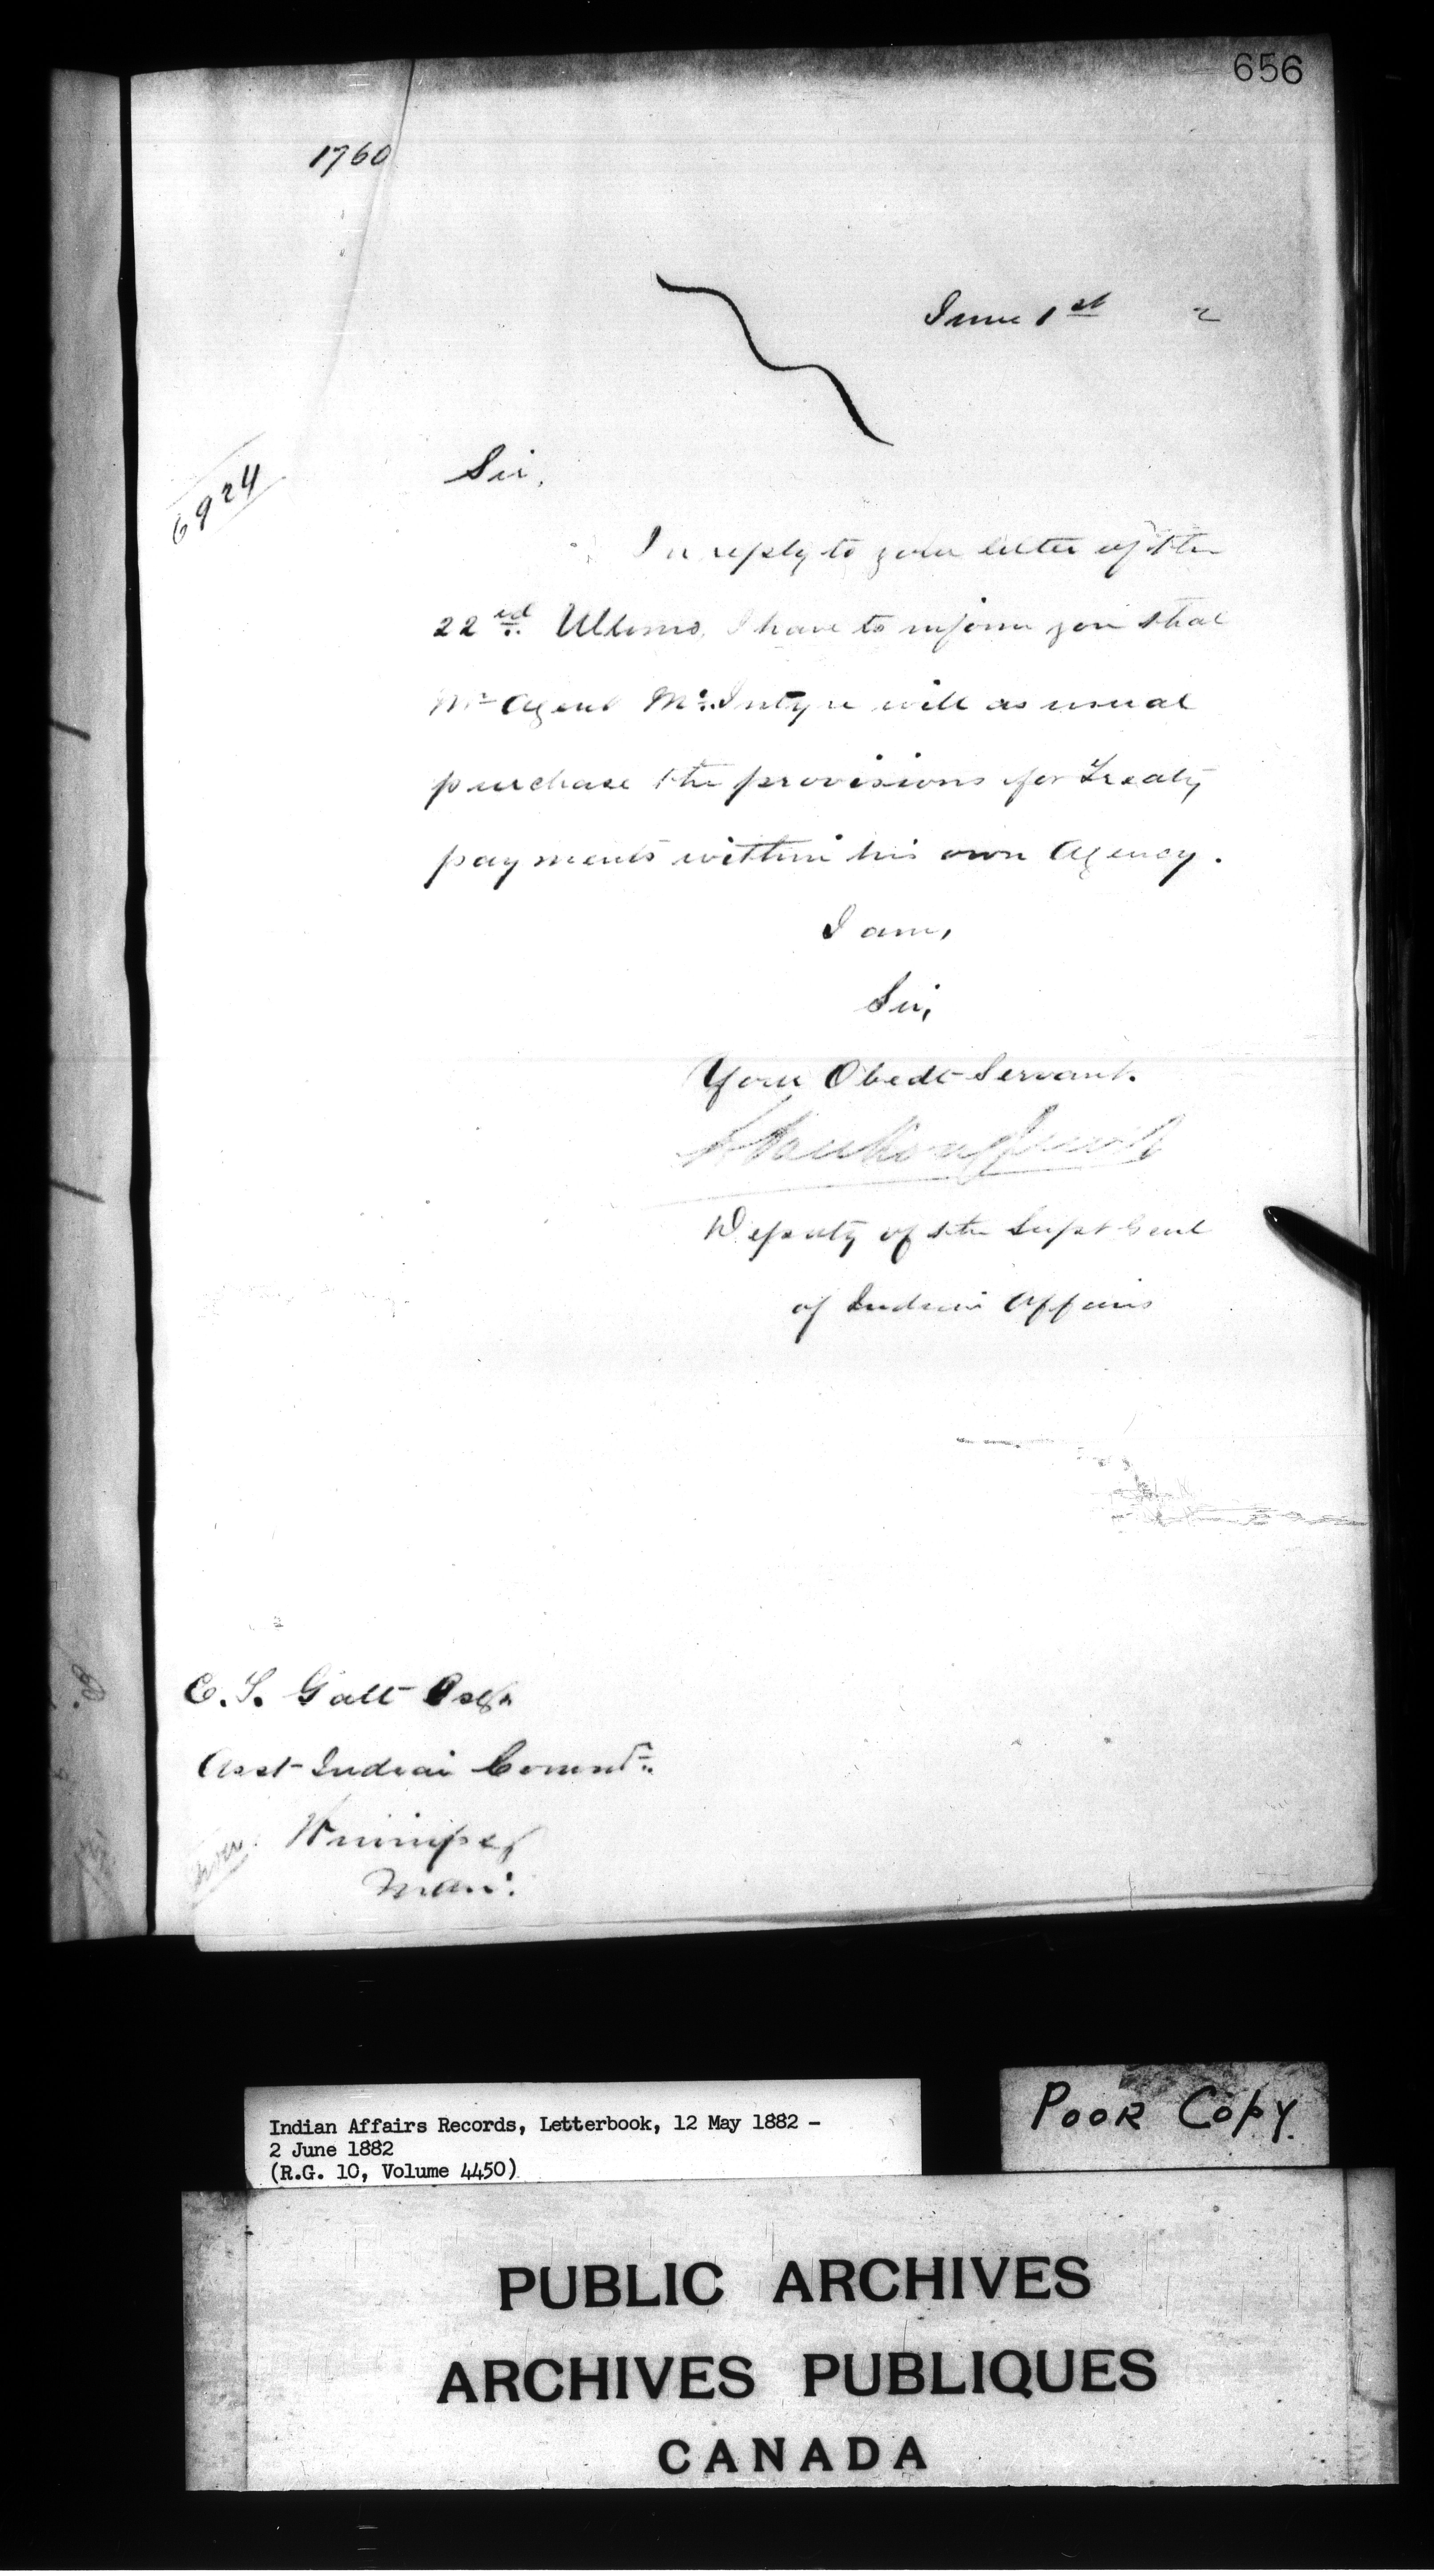 656
1760
June 1st 2
6924
Sir,
In reply to your letter of the
22nd Ultimo, I have to inform you that
Mr Agent McIntyre will as usual
purchase the provisions for Treaty
payments within his own Agency.
I am,
Sir,
Your Obedt Servant.
Deputy of the Supt Genl
of Indian Affairs
E. T. Galt Esqr
Asst Indian Commr
Winnipeg
Man:
Indian Affairs Records, Letterbook, 12 May 1882 -
2 June 1882
(R.G. 10, Volume 4450)
POOR COPY.
PUBLIC ARCHIVES
ARCHIVES PUBLIQUES
CANADA